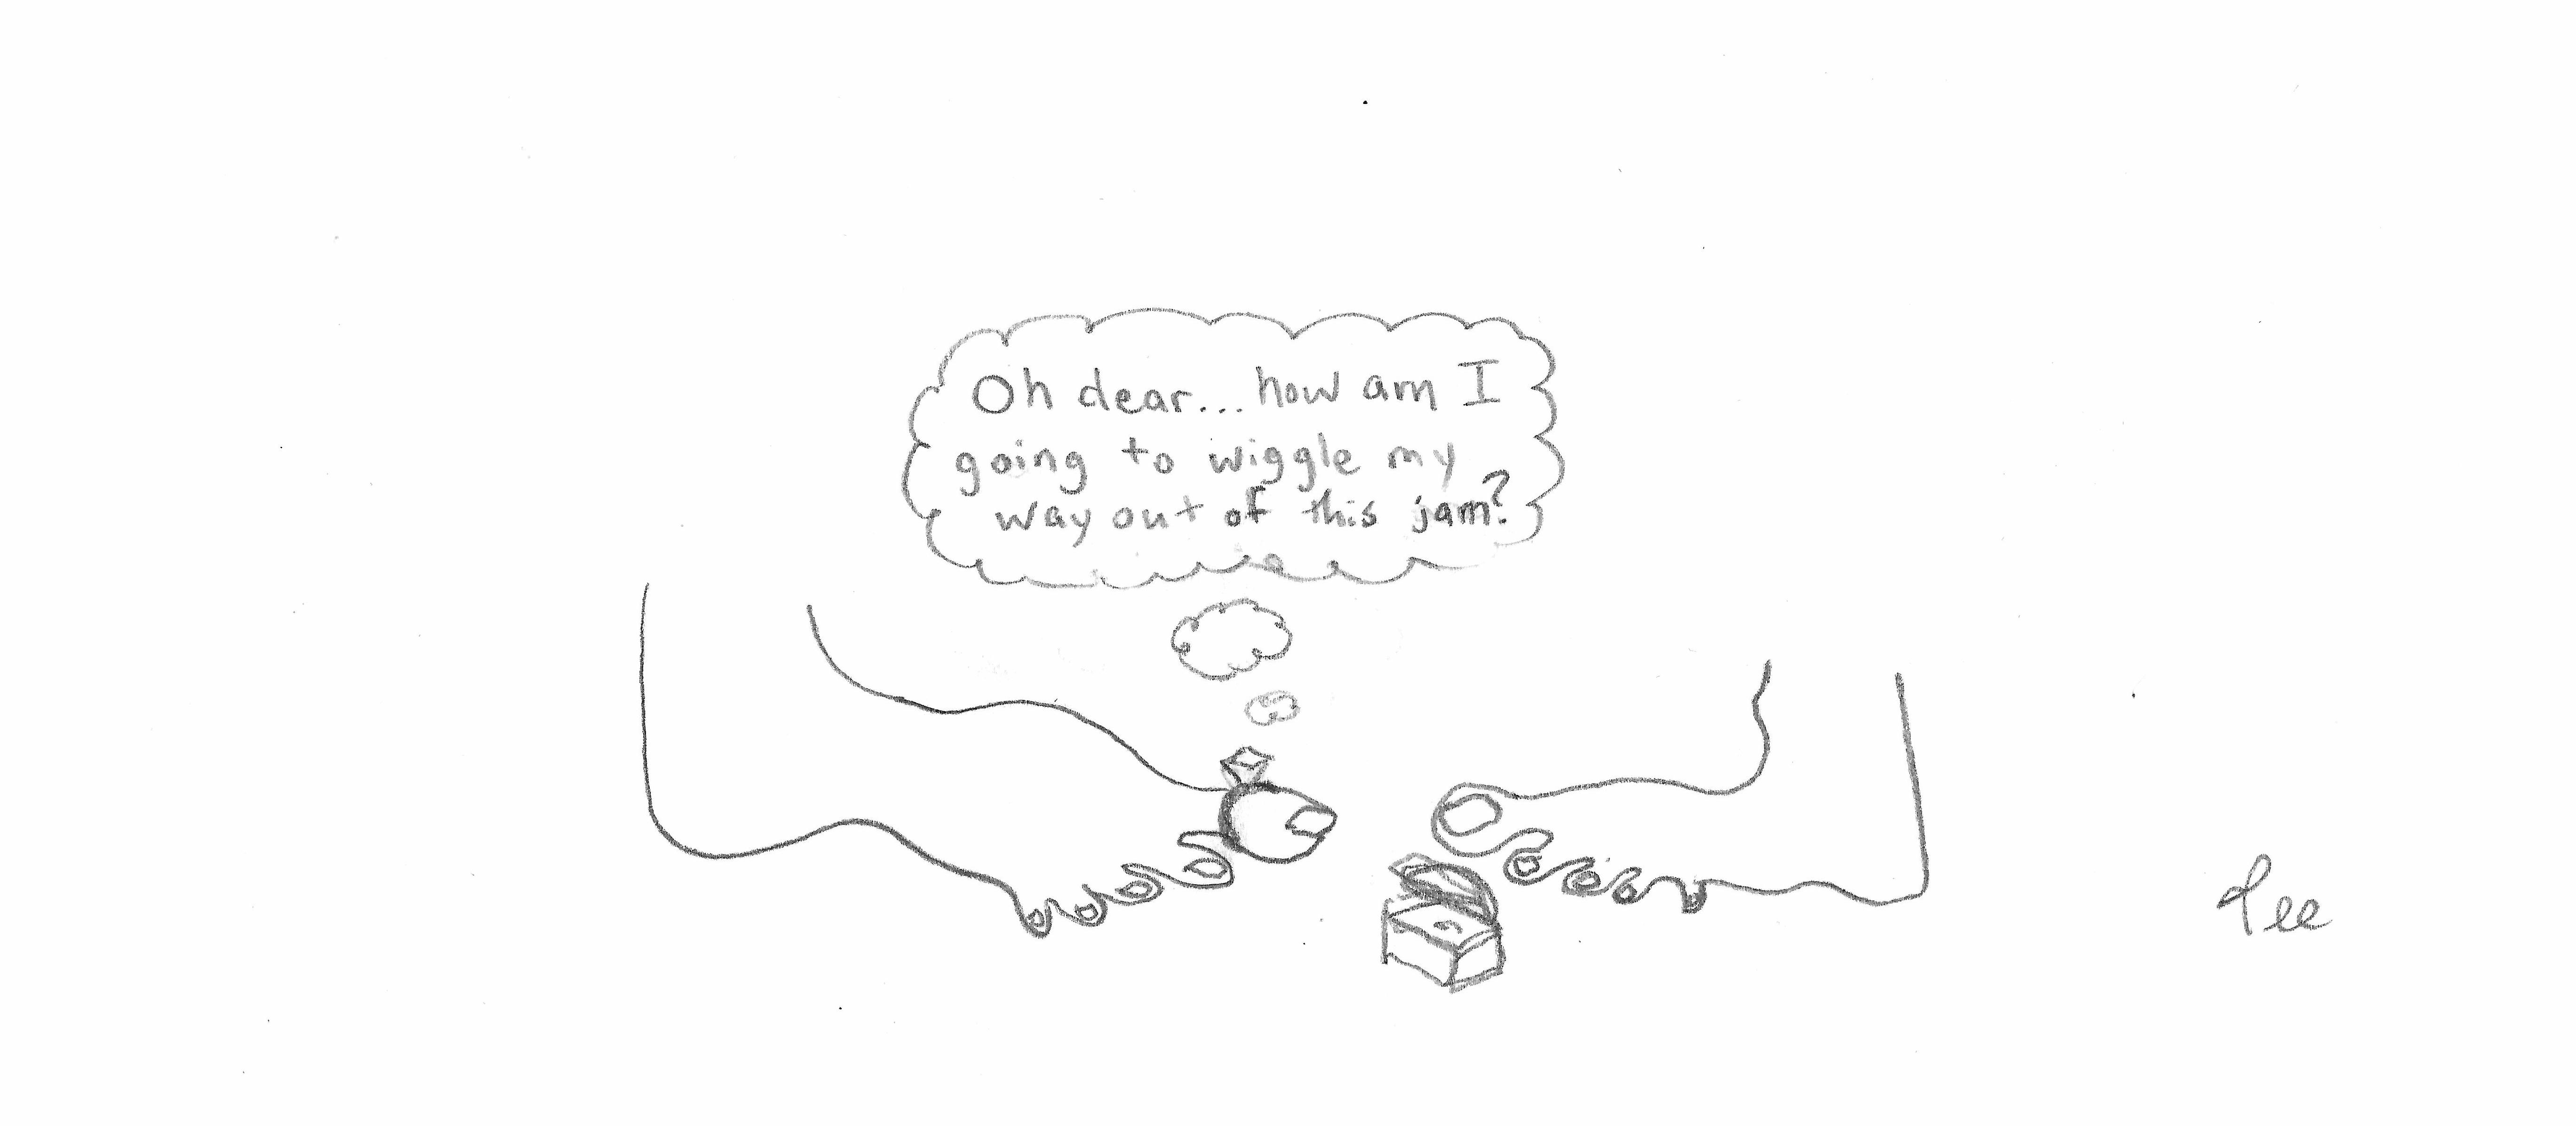 Oh dear... how am I
going to wiggle my
way out of this jam?
Tee